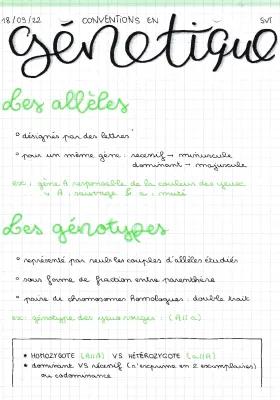 18/09/22 CONVENTIONS EN SVT
génétique
Les allèles
° désignés par des lettres
° pour un même gène : recessif → minuscule
dominant → majuscule
ex : gène A responsable de la couleur des yeux
↳ A : sauvage & a : muté
Les génotypes
° représenté par seuls les couples d'allèles étudiés
° sous forme de fraction entre parenthèse
° paire de chromosomes homologues : double trait
ex : génotype des yeux rouges : (A//a)
• HOMOZYGOTE (A//A) VS HÉTÉROZYGOTE (a//A)
• dominant VS récessif (s'exprime en 2 exemplaires)
ou codominance